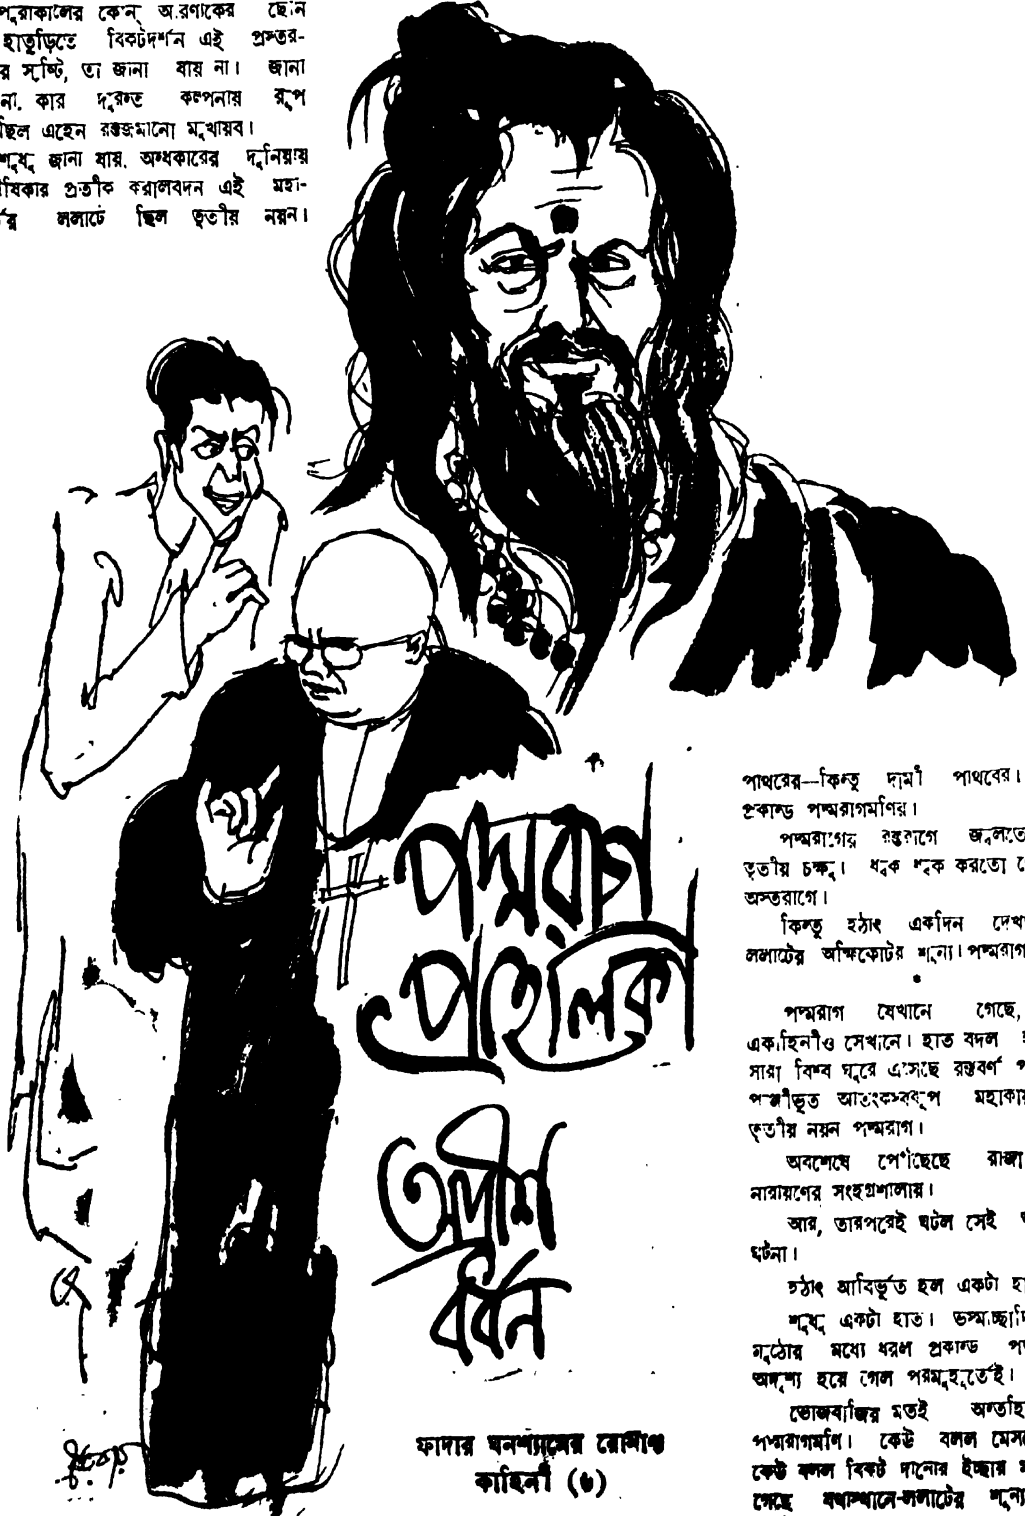 পুরাকালের কোন্ অরণ্যকের ছেনি
হাতুড়িতে বিকটদর্শন এই প্রস্তর-
র সৃষ্টি, তা জানা যায় না। জানা
না, কার দুরন্ত কল্পনায় রূপ
ছিল এহেন রক্তজমানো মুখাবয়ব।
শুধু জানা যায়, অন্ধকারের দুনিয়ায়
প্রতীক করালবদন এই মহা-
ললাটে ছিল তৃতীয় নয়ন।
পাথরের—কিন্তু দামী পাথরের।
প্রকাণ্ড পদ্মরাগমণির।
পদ্মরাগের রক্তরাগে জ্বলতে
তৃতীয় চক্ষু। ধ্বক ধ্বক করতো
অস্তরাগে।
কিন্তু হঠাৎ একদিন দেখ
ললাটের অক্ষিকোটর শূন্য। পদ্মরাগ
*
পদ্মরাগ যেখানে গেছে,
এ কাহিনীও সেখানে। হাত বদল
সারা বিশ্ব ঘুরে এসেছে রক্তবর্ণ
পুঞ্জীভূত আতংকস্বরূপ মহাকায়
তৃতীয় নয়ন পদ্মরাগ।
অবশেষে পৌঁছেছে রাজা
নারায়ণের সংগ্রহশালায়।
আর, তারপরেই ঘটল সেই
ঘটনা।
হঠাৎ আবির্ভূত হল একটা হা
শুধু একটা হাত। ভস্মাচ্ছাদি
মুঠোর মধ্যে ধরল প্রকাণ্ড
অদৃশ্য হয়ে গেল পরমুহূর্তেই।
ভোজবাজির মতই অন্তর্হি
পদ্মরাগমণি। কেউ বলল মেস
কেউ বলল বিকট দানোর ইচ্ছায়
গেছে যথাস্থানে-ললাটের শূন্য
পদ্মরাগ
প্রহেলিকা
অদ্রীশ
বর্ধন
ফাদার ঘনশ্যামের রোমাঞ্চ
কাহিনী (৬)